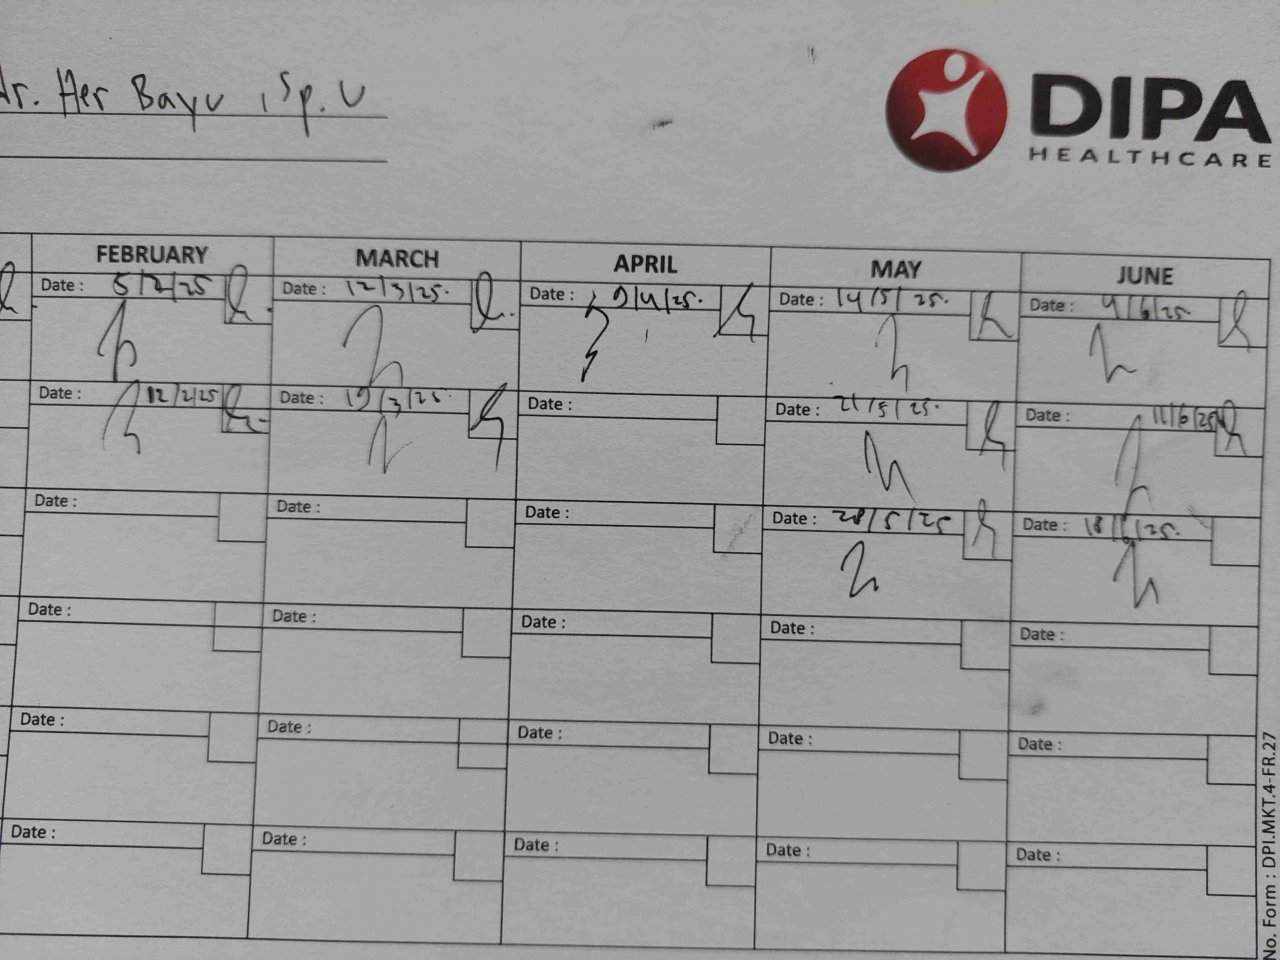 dr. Her Bayu, Sp. U
DIPA
HEALTHCARE
FEBRUARY MARCH APRIL MAY JUNE
Date : 5/2/25 Date : 12/3/25. Date : 9/4/25. Date : 14/5/25. Date : 4/6/25.
Date : 12/2/25 Date : 19/3/25. Date : Date : 21/5/25. Date : 11/6/25
Date : Date : Date : Date : 28/5/25 Date : 18/6/25.
Date : Date : Date : Date : Date :
Date : Date : Date : Date : Date :
Date : Date : Date : Date : Date :
No. Form : DPI.MKT.4-FR.27